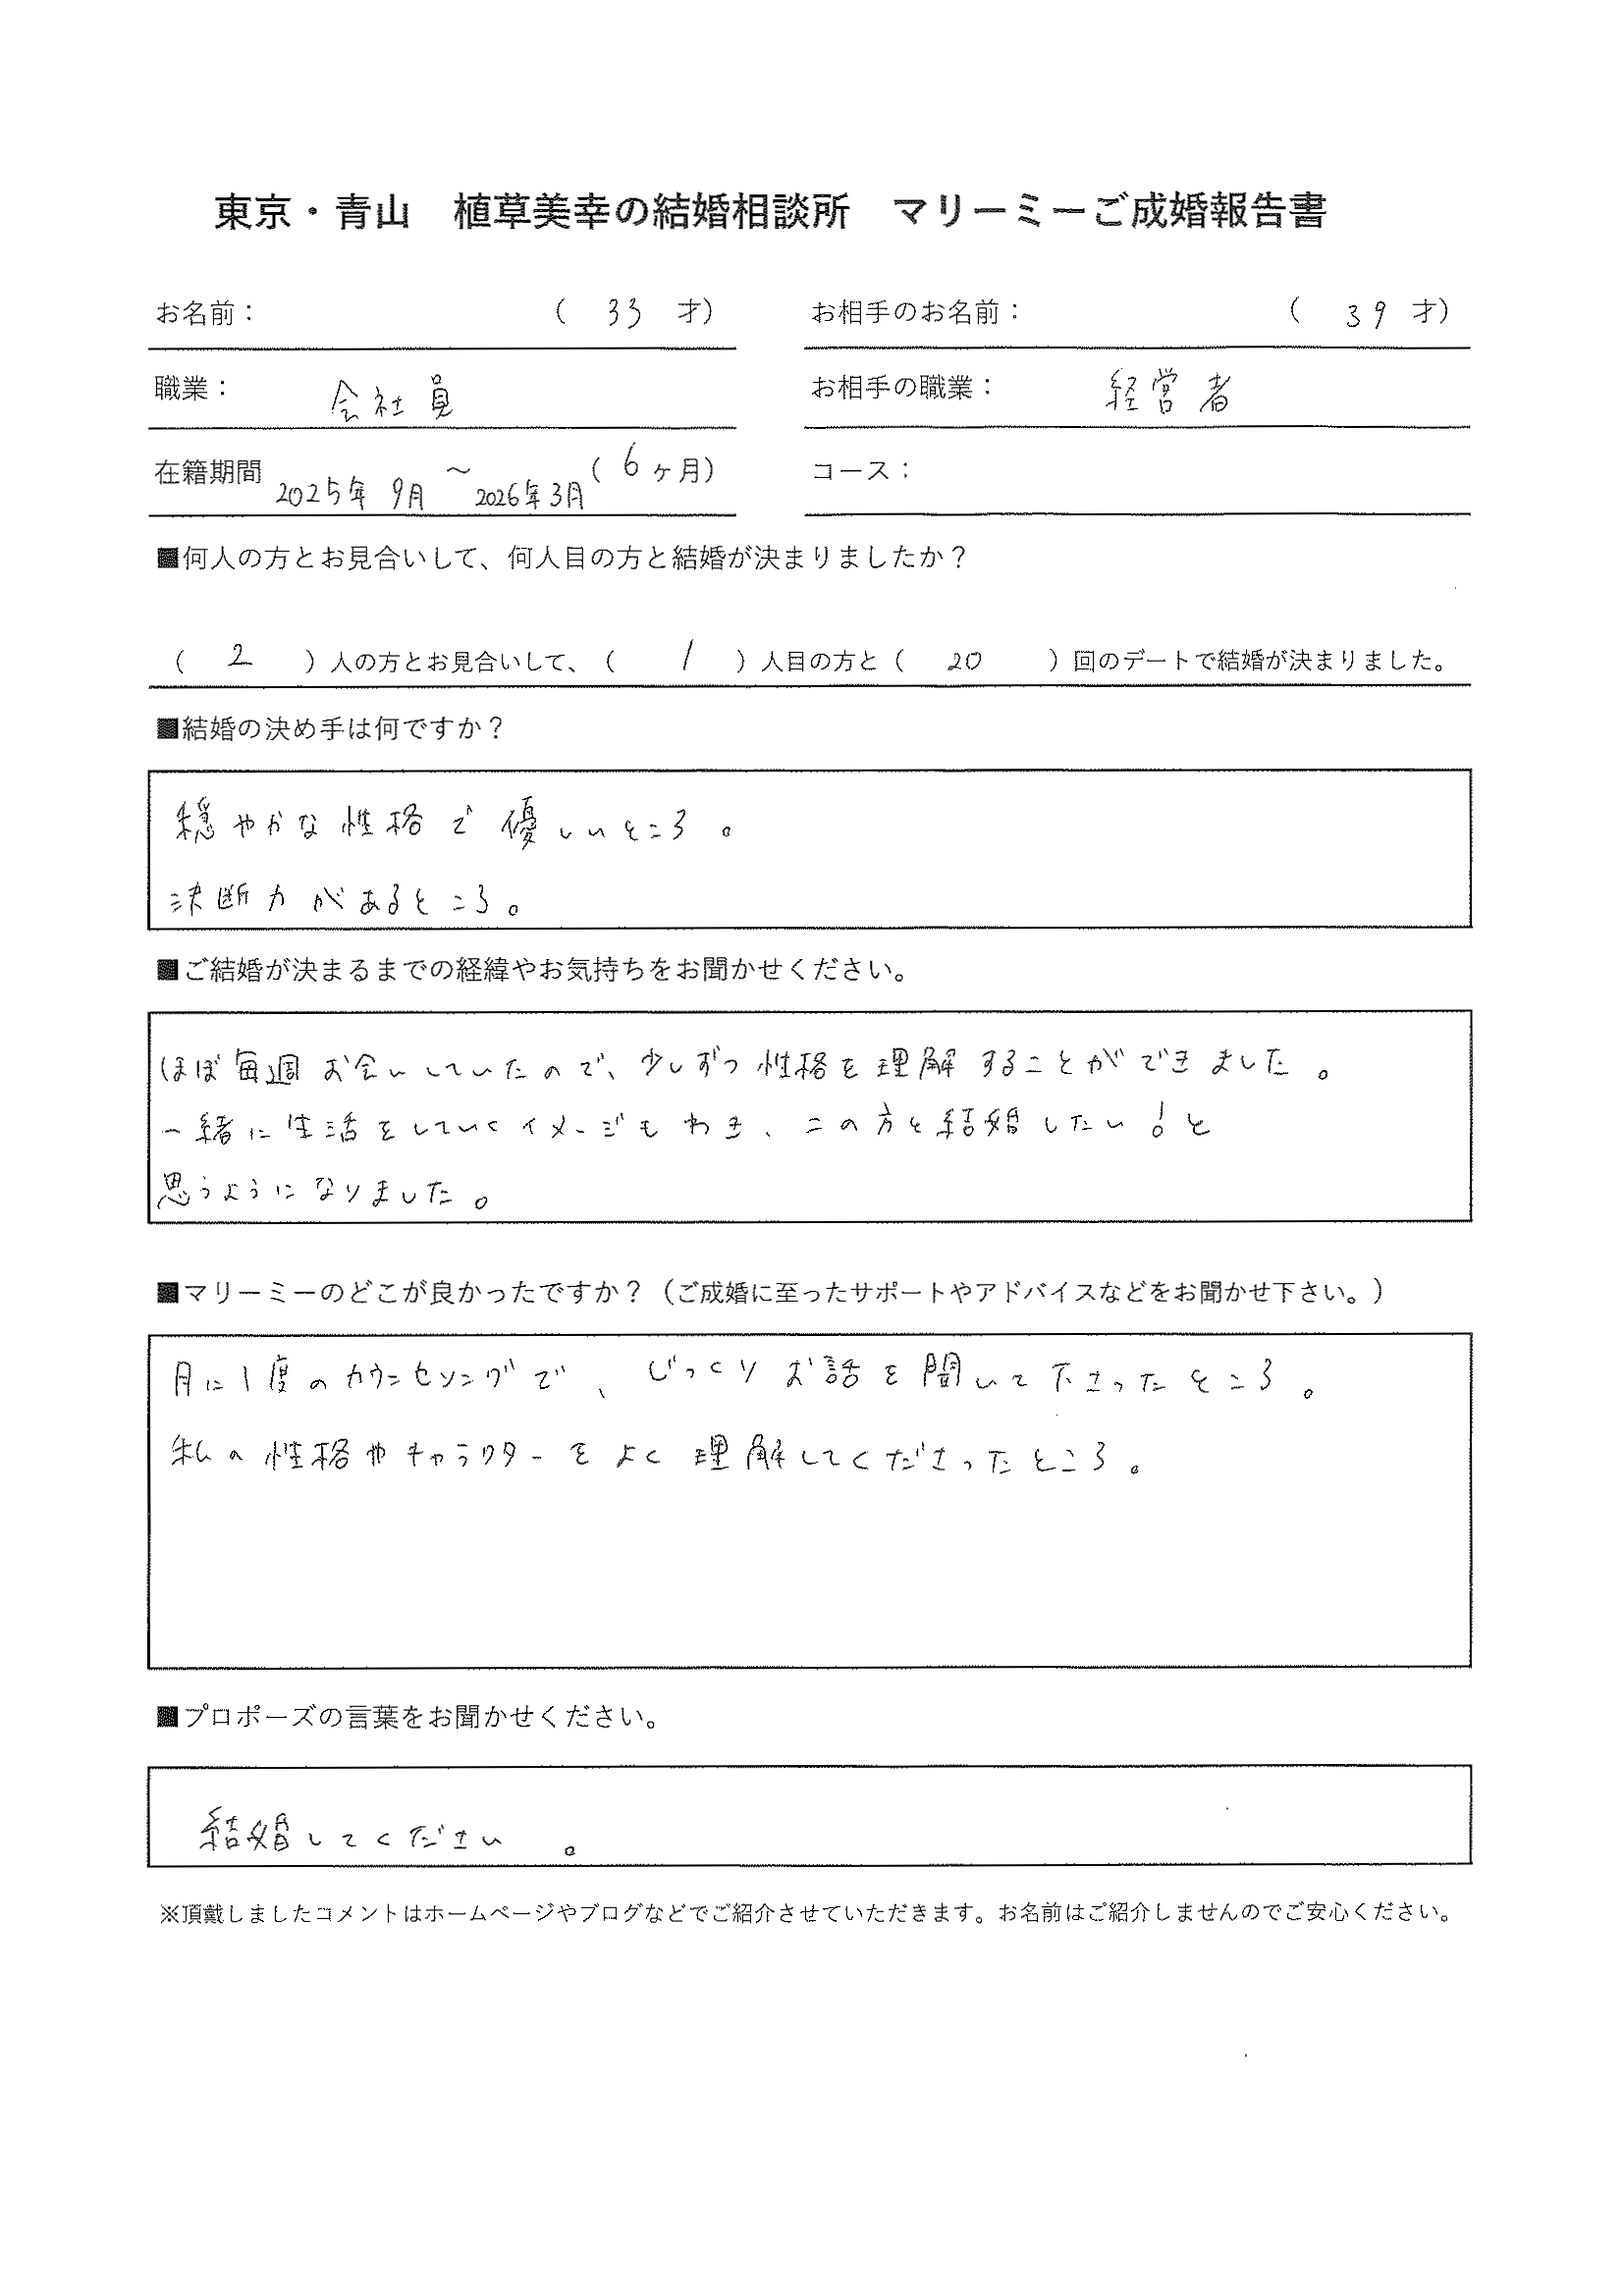 東京・青山　植草美幸の結婚相談所　マリーミーご成婚報告書
お名前：　（ 33 才）　お相手のお名前：　（ 39 才）
職業：　会社員　お相手の職業：　経営者
在籍期間　2025年 9月 〜 2026年 3月（ 6 ヶ月）　コース：
■何人の方とお見合いして、何人目の方と結婚が決まりましたか？
（ 2 ）人の方とお見合いして、（ 1 ）人目の方と（ 20 ）回のデートで結婚が決まりました。
■結婚の決め手は何ですか？
穏やかな性格で優しいところ。
決断力があるところ。
■ご結婚が決まるまでの経緯やお気持ちをお聞かせください。
ほぼ毎週お会いしていたので、少しずつ性格を理解することができました。
一緒に生活をしていくイメージもわき、この方と結婚したい！と
思うようになりました。
■マリーミーのどこが良かったですか？（ご成婚に至ったサポートやアドバイスなどをお聞かせ下さい。）
月に1度のカウンセリングで、じっくりお話を聞いて下さったところ。
私の性格やキャラクターをよく理解してくださったところ。
■プロポーズの言葉をお聞かせください。
結婚してください。
※頂戴しましたコメントはホームページやブログなどでご紹介させていただきます。お名前はご紹介しませんのでご安心ください。